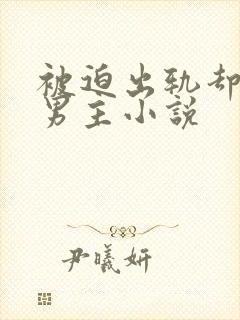 被迫出轨却
男主小说
尹曦妍